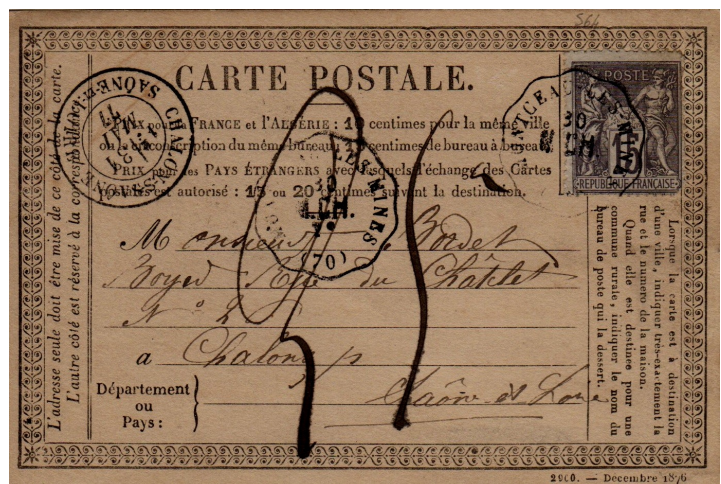 564
CARTE POSTALE.
PRIX pour la FRANCE et l'ALGÉRIE : 10 centimes pour la même ville
ou la circonscription du même bureau, 15 centimes de bureau à bureau
PRIX pour les PAYS ÉTRANGERS avec lesquels l'échange des Cartes
Postales est autorisé : 15 ou 20 centimes suivant la destination.
L'adresse seule doit être mise de ce côté de la carte.
L'autre côté est réservé à la correspondance
CHALON-S-SAÔNE
SAÔNE-ET-
LES-MINES
30
(70)
30
POSTE
15
REPUBLIQUE FRANÇAISE
Monsieur Bordet
Royer Rue du Châtelet
N° 2
à Chalon s/
Saône et Loire
Département
ou
Pays :
Lorsque la carte est à destination
d'une ville, indiquer très-exactement la
rue et le numéro de la maison.
Quand elle est destinée pour une
commune rurale, indiquer le nom du
bureau de poste qui la dessert.
2900. — Decembre 1876